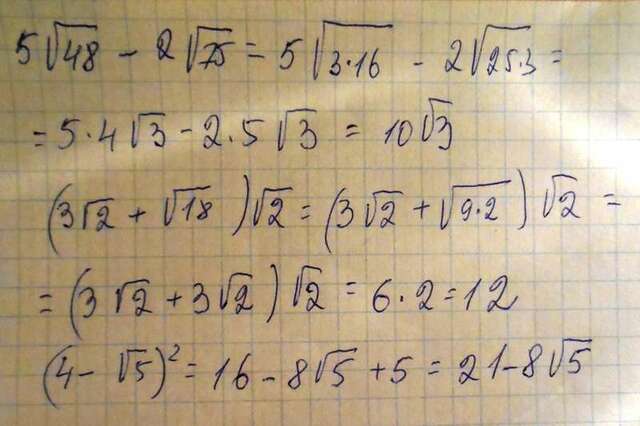 5√48 - 2√75 = 5√3·16 - 2√25·3 =
= 5·4√3 - 2·5√3 = 10√3
(3√2 + √18)√2 = (3√2 + √9·2)√2 =
= (3√2 + 3√2)√2 = 6·2 = 12
(4 - √5)² = 16 - 8√5 + 5 = 21 - 8√5